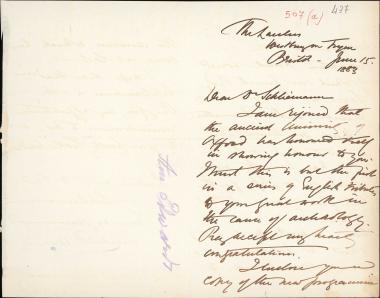 507 (a) 437
The Larches
Westbury on Trym
Bristol - June 15.
1883
Dear Dr Schliemann
I am rejoiced that
the ancient University of
Oxford has honoured itself
in showing honour to you.
this is but the first
in a series of English tributes
to your great work in
the cause of archaeology.
Pray accept my hearty
congratulations.
I enclose you a
copy of the new programme